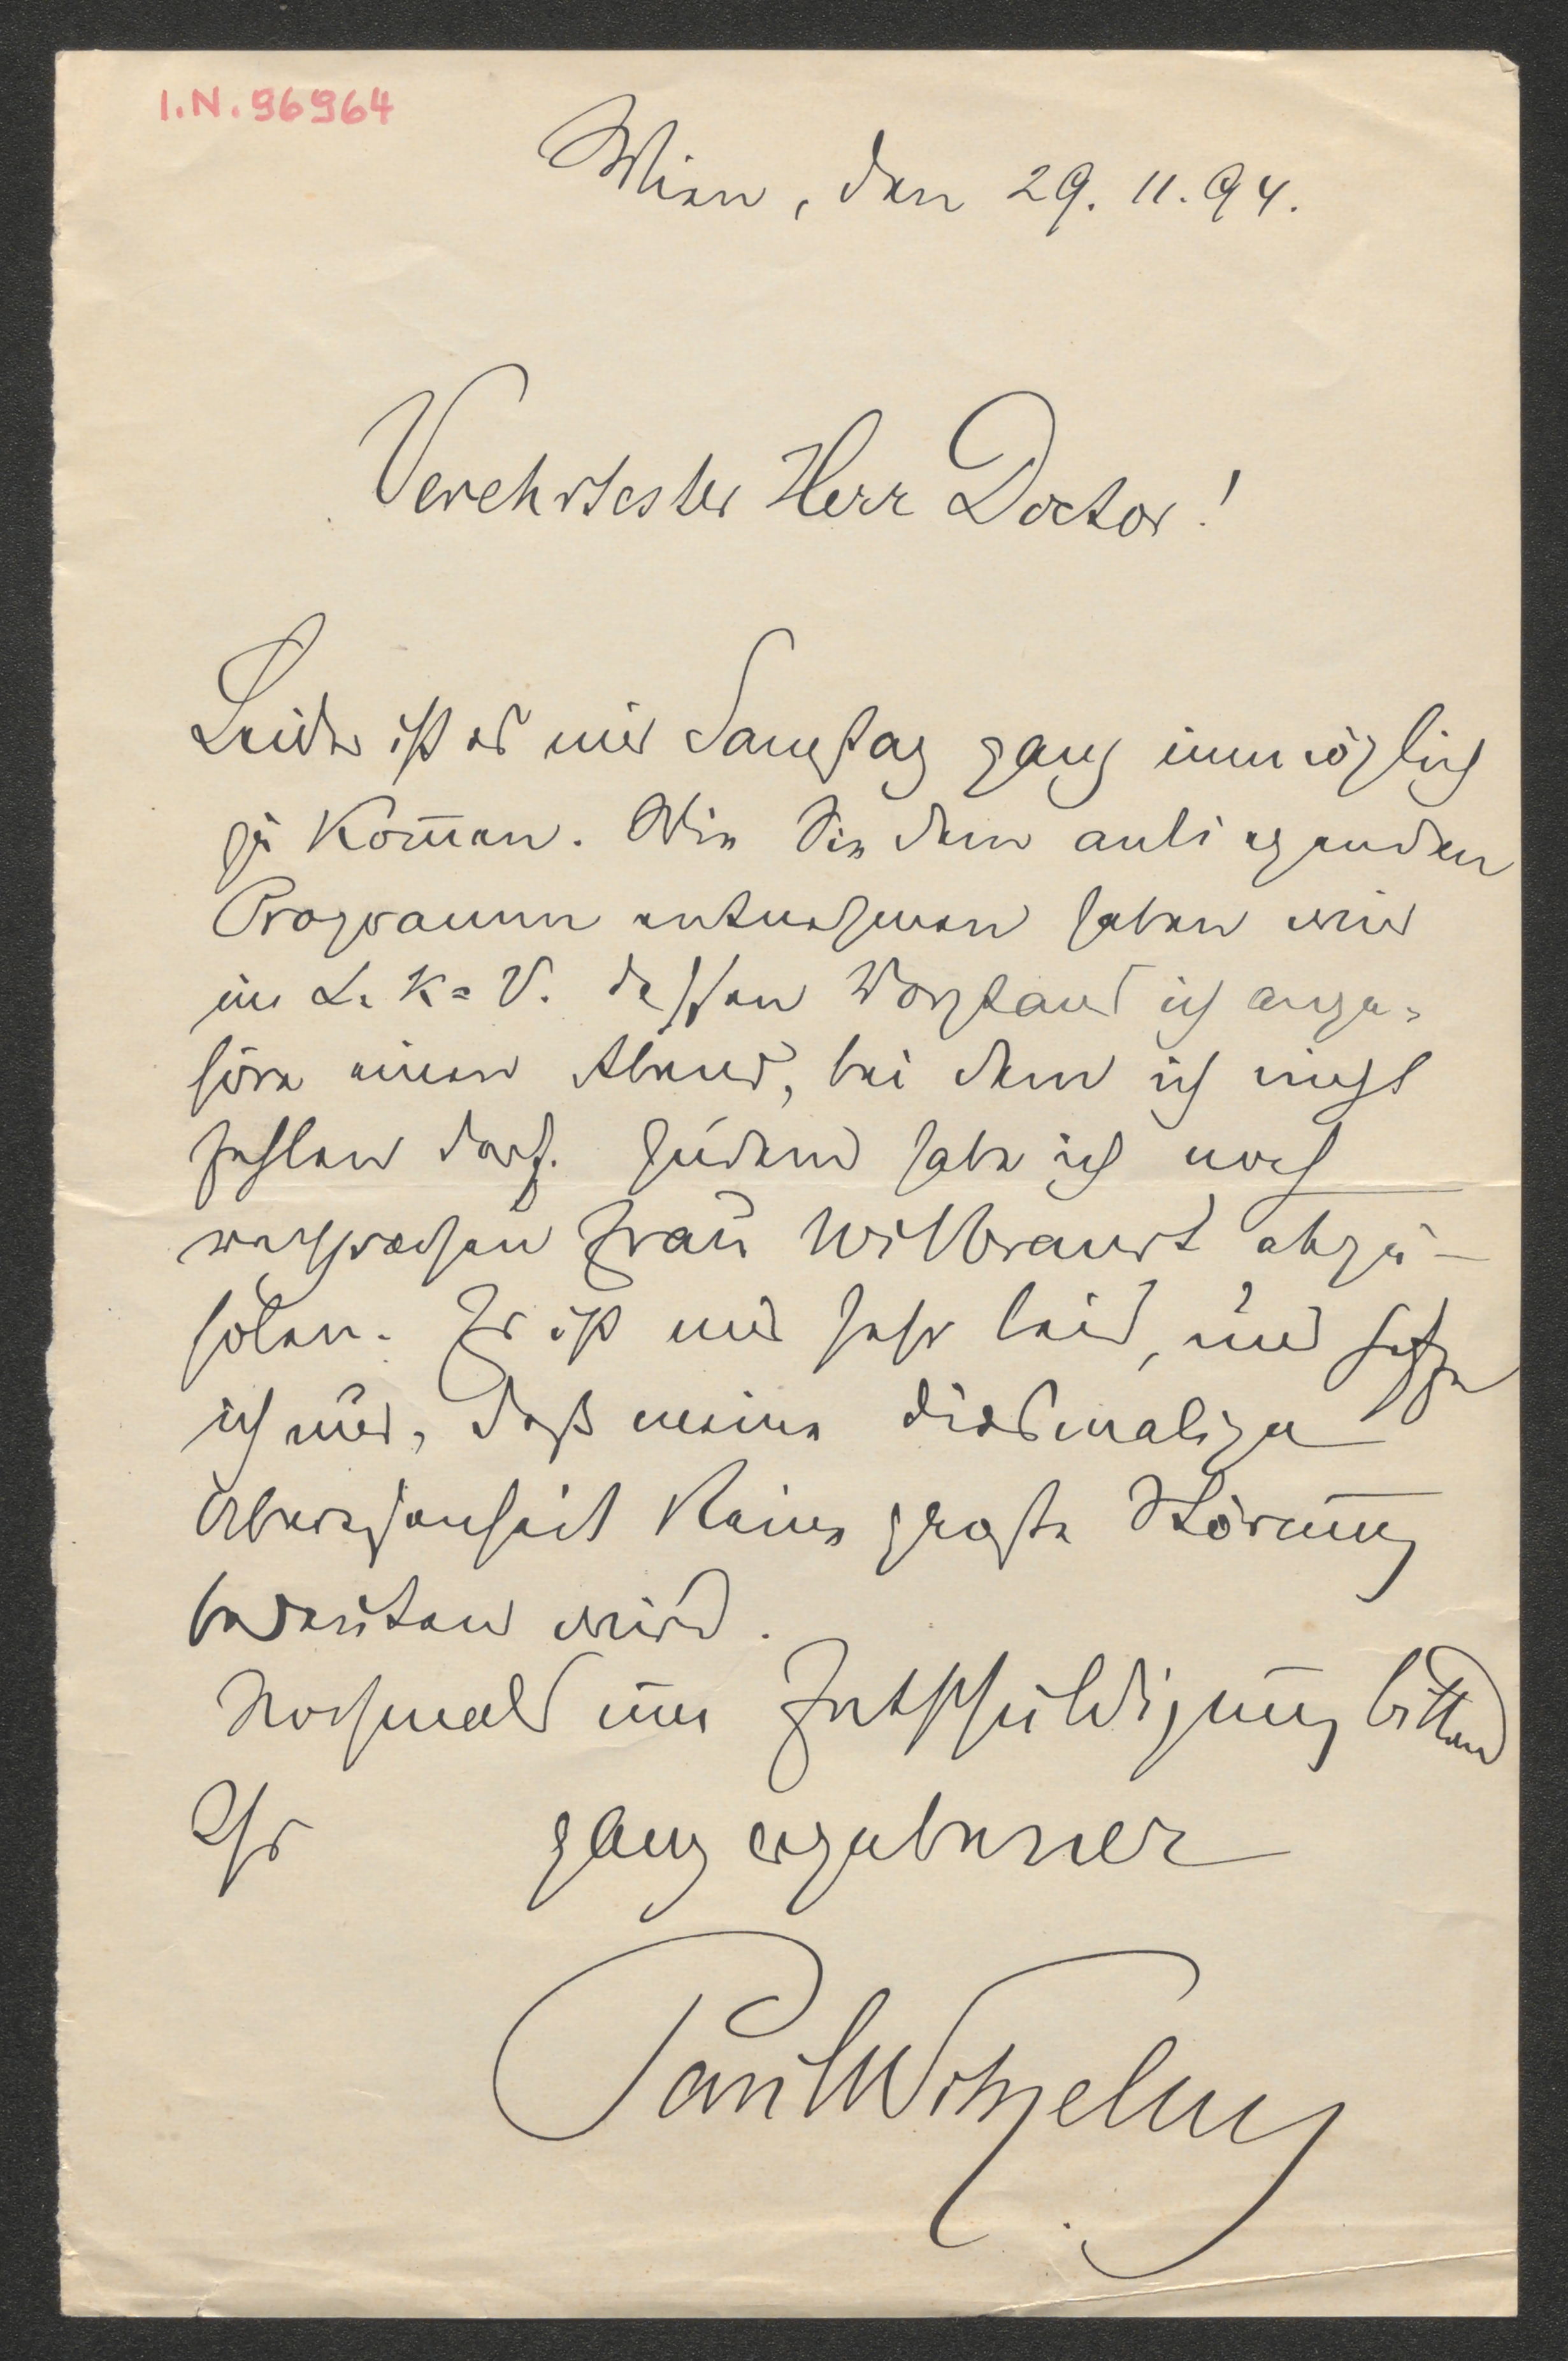 I.N. 96964
Wien, den 29. 11. 94.
Verehrtester Herr Doctor!
Leider ist es mir Samstag ganz unmöglich
zu kom̄en. Wie Sie dem anliegenden
Programm entnehmen haben wir
im L. K= V. dessen Vorstand ich ange-
höre einen Abend, bei dem ich nicht
fehlen darf. Zudem habe ich noch
versprochen Frau Wilbrandt abzu-
holen. Es ist mir sehr leid, und hoffe
ich nur, daß meine diesmalige
Abwesenheit keine große Störung
bedeuten wird.
Nochmals um Entschuldigung bittend
Ihr ganz ergebener
Paul Wilhelm